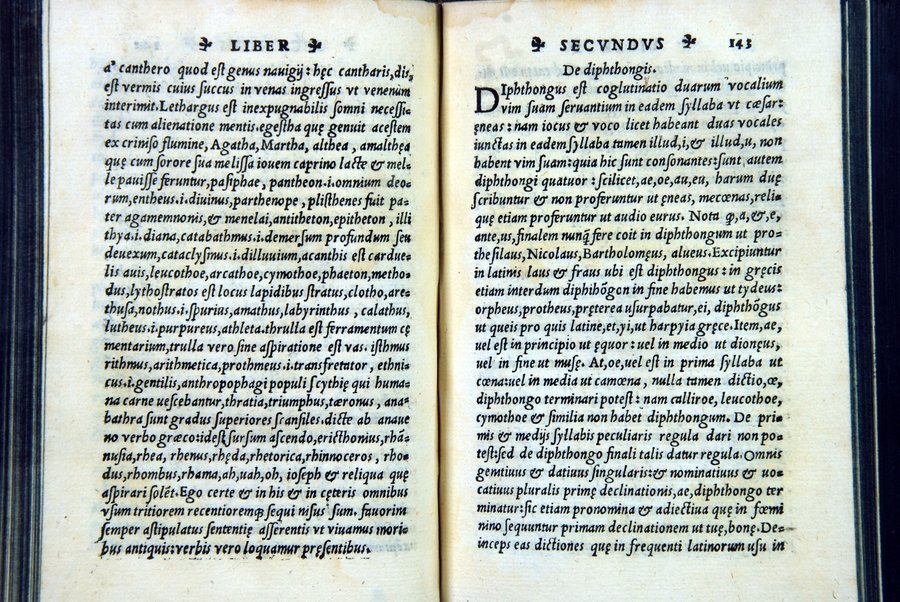 LIBER
a' canthero quod est genus nauigij: hęc cantharis, dis,
est vermis cuius succus in venas ingressus vt venenum
interimit. Lethargus est inexpugnabilis somni necessi-
tas cum alienatione mentis. egestha quę genuit acestem
ex criniso flumine, Agatha, Martha, althea, amalthęa
quę cum sorore sua melissa iouem caprino lacte & mel-
le pauisse feruntur, pasiphae, pantheon .i. omnium deo-
rum, entheus .i. diuinus, parthenope, plisthenes fuit pa-
ter agamemnonis, & menelai, antitheton, epitheton, illi
thya .i. diana, catabathmus .i. demersum profundum seu
deuexum, cataclysmus .i. dilluuium, acanthis est cardue-
lis auis, leucothoe, arcathoe, cymothoe, phaeton, metho-
dus, lythostratos est locus lapidibus stratus, clotho, are-
thusa, nothus .i. spurius, amathus, labyrinthus, calathus,
lutheus .i. purpureus, athleta. thrulla est ferramentum cę
mentarium, trulla vero sine aspiratione est vas. isthmus
rithmus, arithmetica, prothmeus .i. transfretator, ethni-
cus .i. gentilis, anthropophagi populi scythię qui huma-
na carne uescebantur, thratia, triumphus, tæronus, ana-
bathra sunt gradus superiores scansiles. dicte ab anaue
no verbo græco: idest sursum ascendo, ericthonius, rhā-
nusia, rhea, rhenus, rhęda, rhetorica, rhinnoceros, rho-
dus, rhombus, rhama, ah, uah, oh, ioseph & reliqua quę
aspirari solēt. Ego certe & in his & in cęteris omnibus
vsum tritiorem recentioremqꝫ sequi nisus sum. fauorim
semper astipulatus sententię asserentis vt viuamus mori-
bus antiquis: verbis vero loquamur pręsentibus.
SECVNDVS 143
De diphthongis.
DIphthongus est coglutinatio duarum vocalium
vim suam seruantium in eadem syllaba vt cæsar:
ęneas: nam iocus & voco licet habeant duas vocales
iunctas in eadem syllaba tamen illud, i, & illud, u, non
habent vim suam: quia hic sunt consonantes: sunt autem
diphthongi quatuor: scilicet, ae, oe, au, eu, harum duę
scribuntur & non proferuntur ut ęneas, mecœnas, reli-
quę etiam proferuntur ut audio eurus. Nota ꝙ, a, & , e,
ante, us, finalem nunq̃ fere coit in diphthongum ut pro-
thesilaus, Nicolaus, Bartholomęus, alueus. Excipiuntur
in latinis laus & fraus ubi est diphthongus: in gręcis
etiam interdum diphihōgon in fine habemus ut tydeus:
orpheus, protheus, pręterea usurpabatur, ei, diphthōgus
ut queis pro quis latine, et, yi, ut harpyia gręce. Item, ae,
uel est in principio ut ęquor: uel in medio ut dionęus,
uel in fine ut musę. At, oe, uel est in prima syllaba ut
cœna: uel in media ut camœna, nulla tamen dictio, œ,
diphthongo terminari potest: nam calliroe, leucothoe,
cymothoe & similia non habet diphthongum. De pri-
mis & medijs syllabis peculiaris regula dari non po-
test: sed de diphthongo finali talis datur regula. Omnis
genitiuus & datiuus singularis: & nominatiuus & uo-
catiuus pluralis primę declinationis, ae, diphthongo ter
minatur: sic etiam pronomina & adiectiua quę in fœmi
nino sequuntur primam declinationem ut tuę, bonę. De-
inceps eas dictiones quę in frequenti latinorum usu in